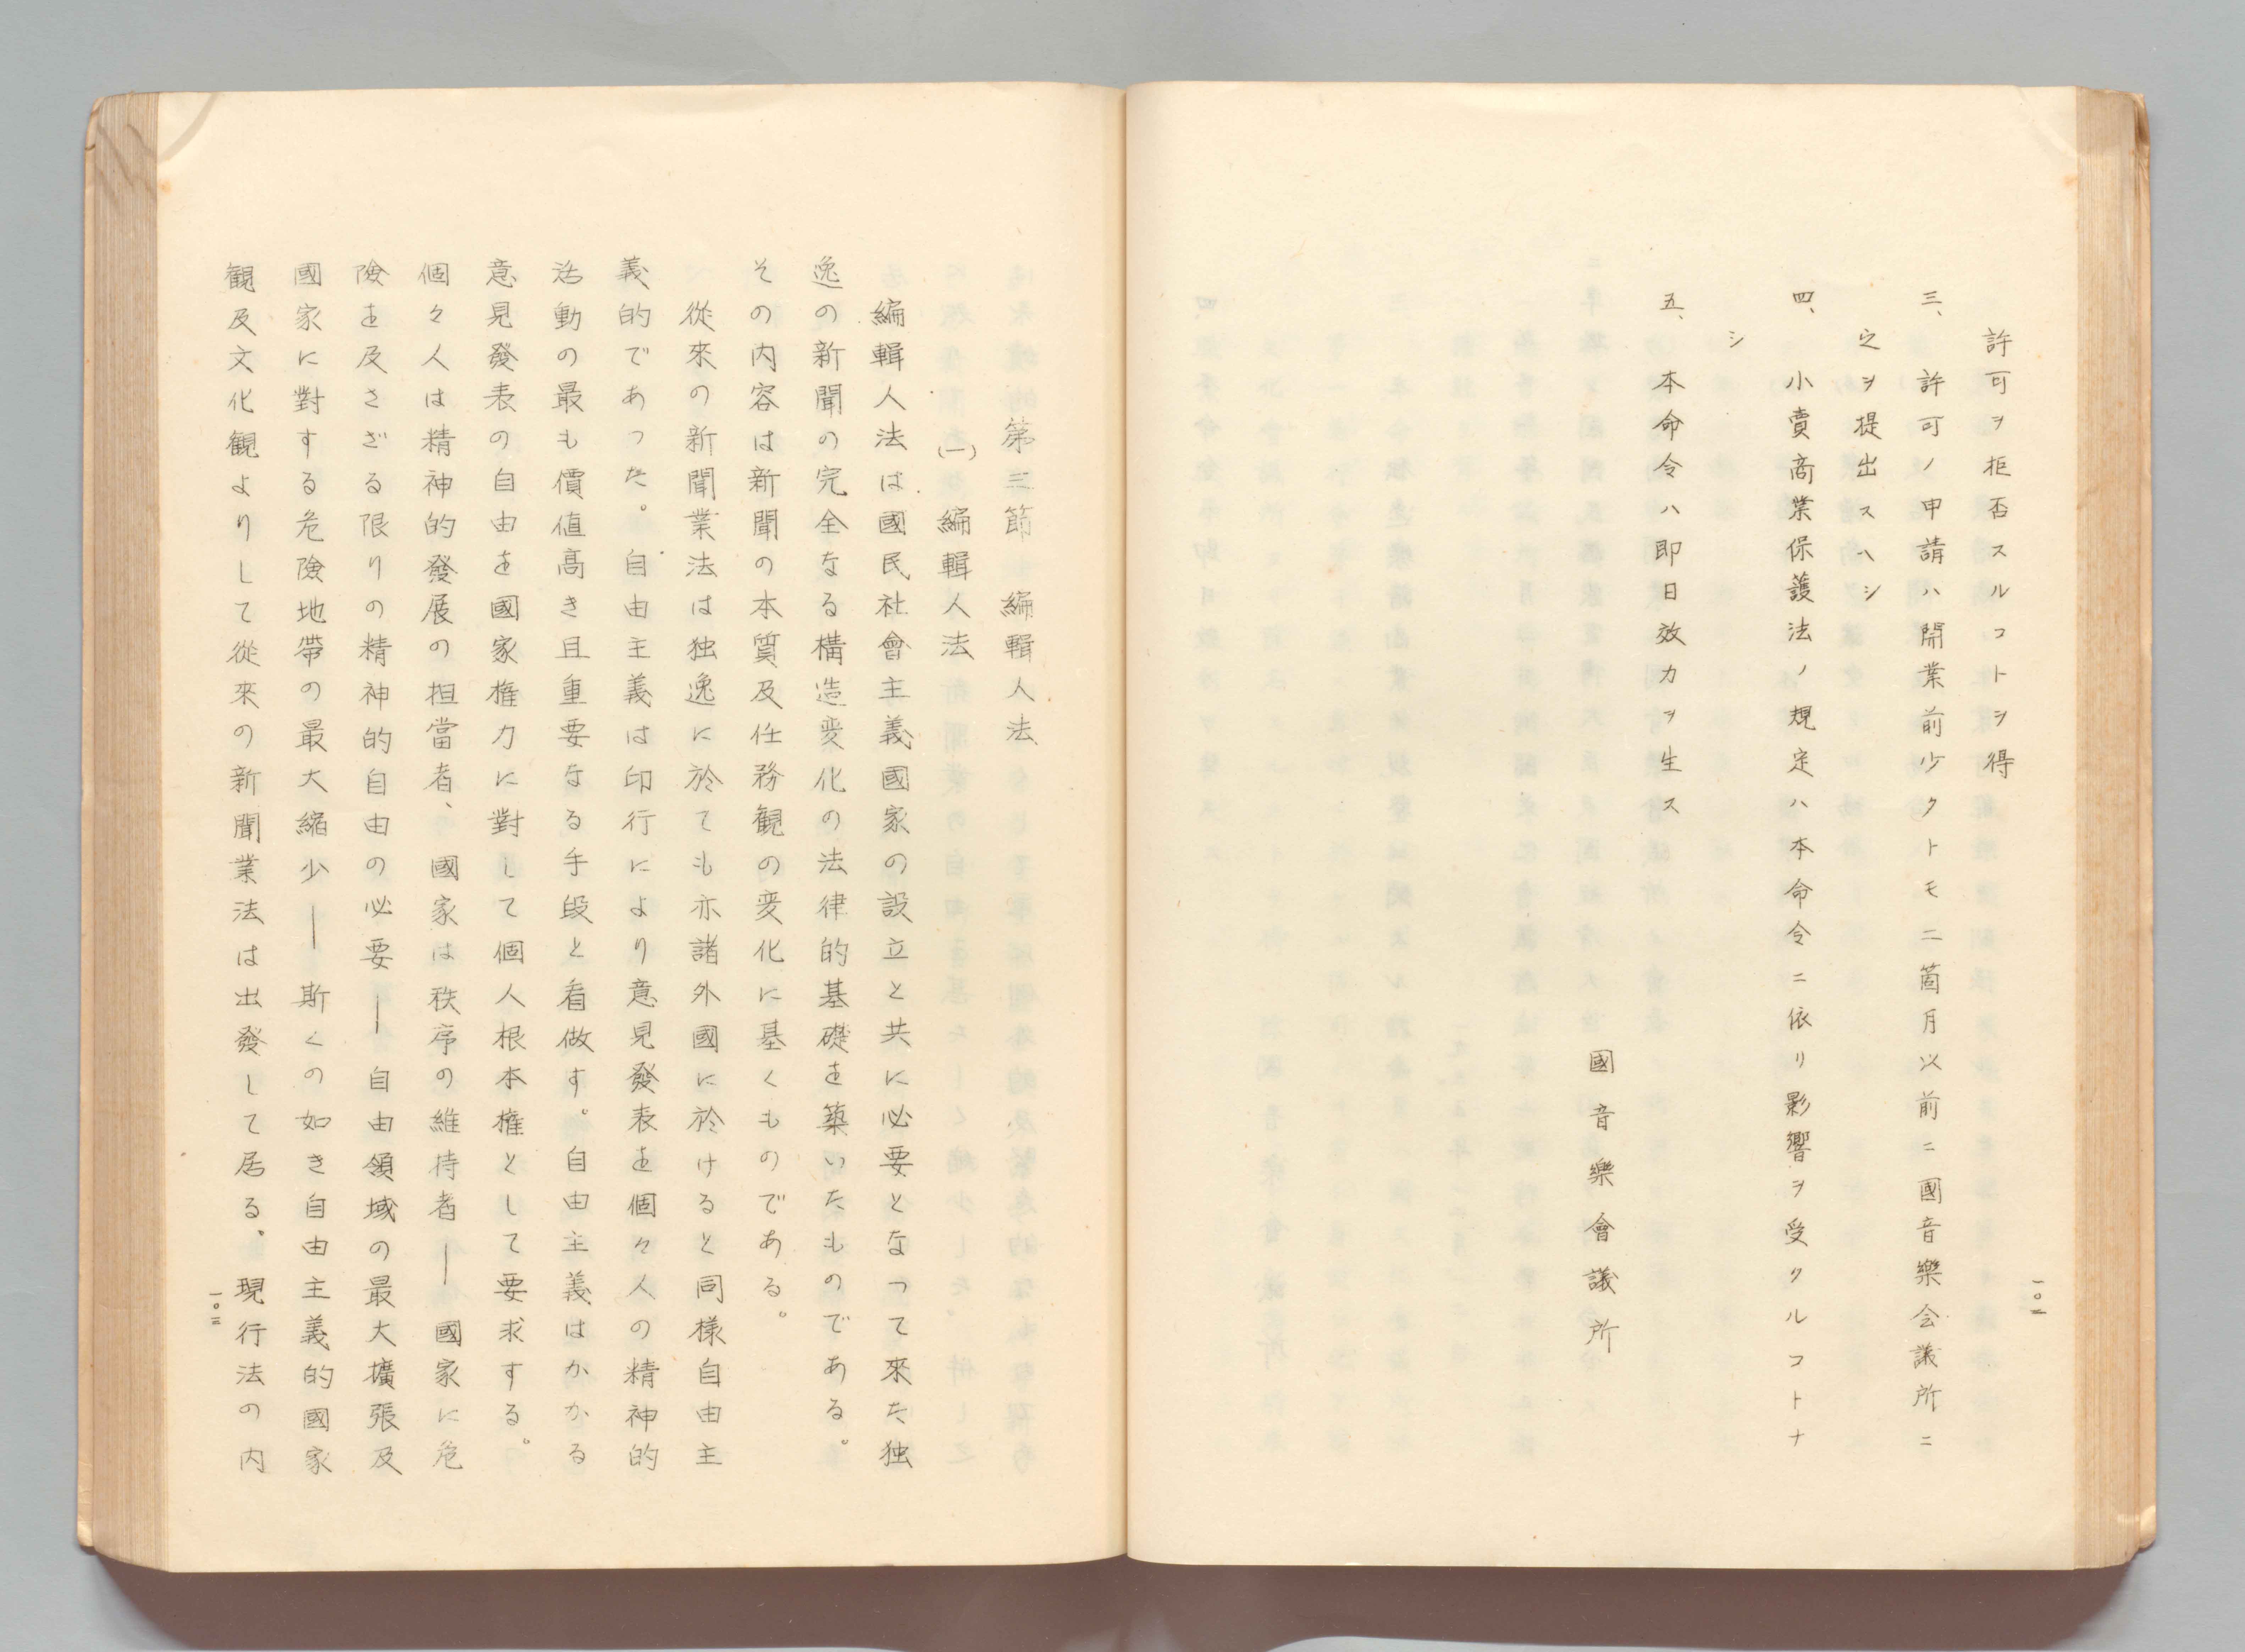 許可ヲ拒否スルコトヲ得
三、許可ノ申請ハ開業前少クトモ二箇月以前ニ國音樂会議所ニ
之ヲ提出スヘシ
四、小賣商業保護法ノ規定ハ本命令ニ依リ影響ヲ受クルコトナ
シ
五、本命令ハ即日效力ヲ生ス
國音樂會議所
一〇一
第三節 編輯人法
(一) 編輯人法
編輯人法は國民社會主義國家の設立と共に必要となって來た独
逸の新聞の完全なる構造変化の法律的基礎を築いたものである。
その内容は新聞の本質及任務観の変化に基くものである。
從來の新聞業法は独逸に於ても亦諸外國に於けると同様自由主
義的であった。自由主義は印行により意見發表を個々人の精神的
活動の最も價値高き且重要なる手段と看做す。自由主義はかかる
意見發表の自由を國家権力に對して個人根本権として要求する。
個々人は精神的發展の担當者、國家は秩序の維持者―國家に危
險を及さざる限りの精神的自由の必要―自由領域の最大擴張及
國家に對する危險地帶の最大縮少―斯くの如き自由主義的國家
観及文化観よりして從來の新聞業法は出發して居る、現行法の内
一〇二